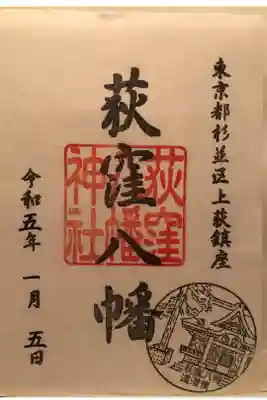 東京都杉並区上荻鎮座
荻窪八幡
荻窪
八幡
神社
令和五年 一月 五日